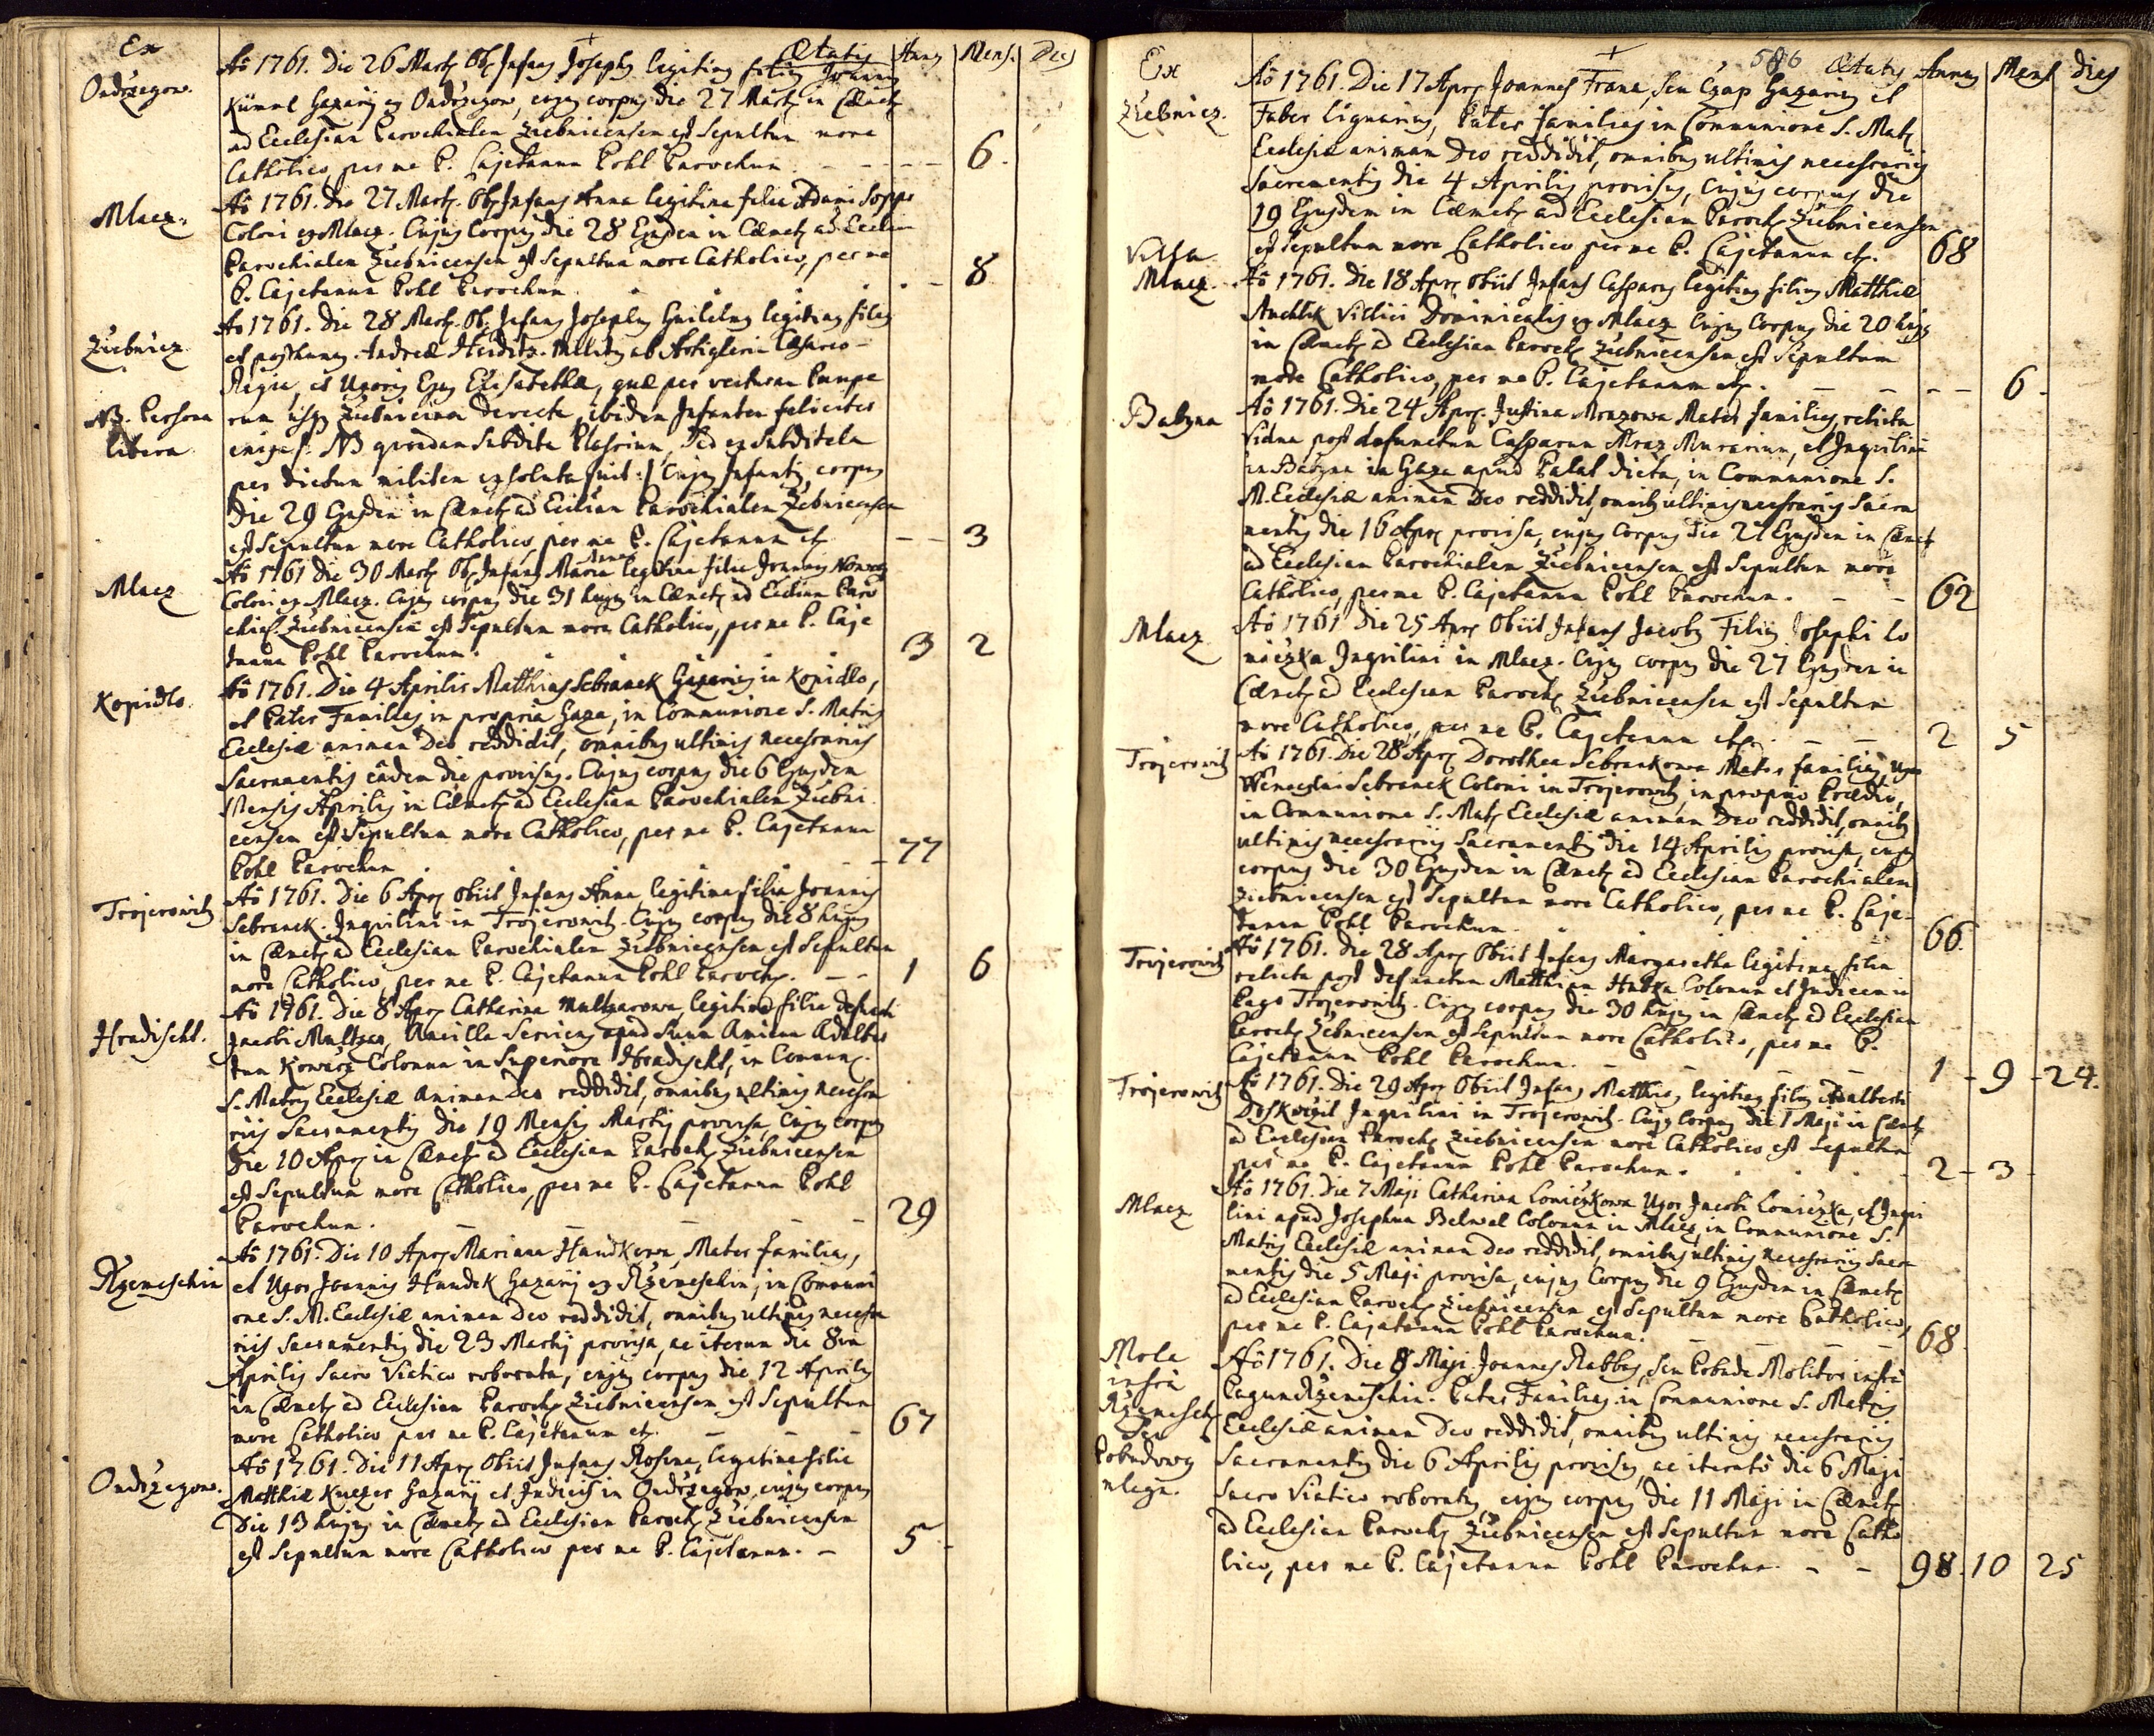 Ex
Ondrzegow.
Aō 1761. Die 26 Mart. Ob. Infans Josephus legitimus filius Joannis
Ætatis Annus Mens. Dies
Kümml Gazarij ex Ondrzegow, cujus corpus die 27 Martij in Cæmet.
ad Ecclesiam Parochialem Ziebnicensem est Sepultum more
Catholico, per me P. Cajetanum Pohl Parochum. 6.
Mlacz.
Aō 1761. Die 27 Mart. Ob. Infans Anna legitima filia Adami
Coloni ex Mlacz. Cujus Corpus die 28 Ejusdem in Cæmet. ad Ecclesiam
Parochialem Ziebnicensem est Sepultum more Catholico, per me
P. Cajetanum Pohl Parochum. 8
Ziebnicz
Aō 1761. Die 28 Mart. Ob. Infans Josephus Guilelmus legitimus filius
et posthumus Andreæ Militis ab Artigleria Cæsareo-
Regia, et Uxoris Ejus Elisabethæ, quæ per vecturam Paupe
NB. Persona
libera
rum usque Ziebnicium directe, ibidem Infantem feliciter
enixa est. NB quondam Subdita sed ex Subditela
per dictum militem exsoluta fuit :/ Cujus Infantis corpus
Die 29 Ejusdem in Cæmet. ad Ecclesiam Parochialem Zebnicensem
est Sepultum more Catholico, per me P. Cajetanum etc. 3
Mlacz
Aō 1761 Die 30 Mart. Ob. Infans Maria Anna legitima filia Joannis
Coloni ex Mlacz. Cujus corpus die 31 hujus in Cæmet. ad Ecclesiam Paro
chial. Ziebnicensem est Sepultum more Catholico, per me P. Caje
tanum Pohl Parochum. 3 2
Kopidlo.
Aō 1761. Die 4 Aprilis Matthias Sebranek Gazarius in Kopidlo,
et Pater Familias in propria Gaza, in Communione S. Matris
Ecclesiæ animam Deo reddidit, omnibus ultimis necessariis
Sacramentis eâdem die provisus. Cujus corpus die 6 Ejusdem
Mensis Aprilis in Cæmet. ad Ecclesiam Parochialem Ziebni
censem est Sepultum more Catholico, per me P. Cajetanum
Pohl Parochum. 77
Trojerowitz
Aō 1761. Die 6 Apr. Obiit Infans Anna, legitima filia Joannis
Sebranek. Inquilini in Trojerowitz. Cujus corpus die 8 hujus
in Cæmet. ad Ecclesiam Parochialem Ziebnicensem est Sepultum
more Catholico, per me P. Cajetanum Pohl Paroch. 1 6
Hradischt.
Aō 1761. Die 8 Apr. Catharina Multzarowa, legitima filia defuncti
Jacobi Multzar, Ancilla Serviens apud Suum Adalber
tum Kowarz Colonum in Superiore Hradischt, in Commun.
S. Matris Ecclesiæ animam Deo reddidit, omnibus ultimis necessa
riis Sacramentis die 19 Mensis Martij provisa, Cujus corpus
Die 10 Apr. in Cæmet. ad Ecclesiam Paroch. Ziebnicensem
est Sepultum more Catholico, per me P. Cajetanum Pohl
Parochum. 29
Rzemeschin
Aō 1761. Die 10 Apr. Mariana Haudkowa, Mater familias,
et Uxor Joannis Haudek Gazarij ex Rzemeschin, in Communi
one S. M. Ecclesiæ animam Deo reddidit, omnibus ultimis necessa
riis Sacramentis die 23 Martij provisa, ac iterum die 8va
Aprilis Sacro Viatico roborata, cujus corpus die 12 Aprilis
in Cæmet. ad Ecclesiam Paroch. Ziebnicensem est Sepultum
more Catholico per me P. Cajetanum etc. 67
Ondrzegow.
Aō 1761. Die 11 Apr. Obiit Infans Rosina, legitima filia
Matthiæ Gazarij et Judicis in Ondrzegow, cujus corpus
Die 13 hujus in Cæmet. ad Ecclesiam Paroch. Ziebnicensem
est Sepultum more Catholico per me P. Cajetanum. 5
586
Ex
Ziebnicz.
Ætatis Annus Mens dies
Aō 1761. Die 17 Apr. Joannes Frana, seu Czap Gazarius et
Faber lignarius, Pater familias in Communione S. Mat.
Ecclesiæ animam Deo reddidit, omnibus ultimis necessariis
Sacramentis die 4 Aprilis provisus, Cujus corpus die
19 Ejusdem in Cæmet. ad Ecclesiam Paroch. Ziebnicensem
est Sepultum more Catholico per me P. Cajetanum etc. 68
Villa
Mlacz.
Aō 1761. Die 18 Apr. Obiit Infans Casparus legitimus filius Matthiæ
Villici Dominicalis ex Mlacz. Cujus Corpus die 20 hujus
in Cæmet. ad Ecclesiam Paroch. Ziebnicensem est Sepultum
more Catholico, per me P. Cajetanum etc. 6
Babyna
Aō 1761. Die 24 Apr. Justina Mrazowa Mater familias, relicta
Vidua post defunctum Casparum Mraz Murarium, et Inquilina
in Babyna in Gaza apud Palat dicta, in Communione S.
M. Ecclesiæ animam Deo reddidit, omnib. ultimis necessariis Sacra
mentis die 16 Apr. provisa, cujus corpus die 27 Ejusdem in Cæmet.
ad Ecclesiam Parochialem Ziebnicensem est Sepultum more
Catholico, per me P. Cajetanum Pohl Parochum. 62
Mlacz
Aō 1761 Die 25 Apr. Obiit Infans Jacobus Filius Josephi Lo
niczka Inquilini in Mlacz. Cujus corpus die 27 Ejusdem in
Cæmet. ad Ecclesiam Paroch. Ziebnicensem est Sepultum
more Catholico, per me P. Cajetanum etc. 2 5
Trojerowitz
Aō 1761. Die 28 Apr. Dorothea Sebrankowa Mater familias, Uxor
Wenceslai Sebranek Coloni in Trojerowitz, in proprio Prædio,
in Communione S. Mat. Ecclesiæ animam Deo reddidit, omnib.
ultimis necessariis Sacramentis die 14 Aprilis provisa, cujus
corpus die 30 Ejusdem in Cæmet. ad Ecclesiam Parochialem
Ziebnicensem est Sepultum more Catholico, per me P. Caje-
tanum Pohl Parochum. 66.
Trojerowitz
Aō 1761. Die 28 Apr. Obiit Infans Margaretha legitima filia
relicta post defunctum Matthiam Colonum et Judicem in
Pago Trojerowitz. Cujus corpus die 30 hujus in Cæmet. ad Ecclesiam
Paroch. Zebnicensem est Sepultum more Catholico, per me P.
Cajetanum Pohl Parochum. 1 - 9 - 24.
Trojerowitz
Aō 1761. Die 29 Apr. Obiit Infans Matthias, legitimus filius Adalberti
Doskoczil Inquilini in Trojerowitz. Cujus Corpus die 1 Maji in Cæmet.
ad Ecclesiam Paroch. Ziebnicensem more Catholico est Sepultum
per me P. Cajetanum Pohl Parochum. 2 - 3 -
Mlacz
Aō 1761. Die 7 Maji Catharina Loniczkowa Uxor Jacobi Loniczka, et Inqui
lini apud Josephum Colonum in Mlacz, in Communione S.
Matris Ecclesiæ animam Deo reddidit, omnibus ultimis necessariis Sacra
mentis die 5 Maji provisa, cujus Corpus die 9 Ejusdem in Cæmet.
ad Ecclesiam Paroch. Ziebnicensem est Sepultum more Catholico,
per me P. Cajetanum Pohl Parochum. 68
Mola
infra
Rzemesch.
Aō 1761. Die 8 Maji Joannes Rabbas, seu Pobuda Molitor infra
Pagum Rzemeschin. Pater Familias in Communione S. Matris
Ecclesiæ animam Deo reddidit, omnibus ultimis necessariis
Sacramentis die 6 Aprilis provisus, ac iteratò die 6 Maji
Sacro Viatico roboratus, cujus corpus die 11 Maji in Cæmet.
ad Ecclesiam Paroch. Ziebnicensem est Sepultum more Catho
lico, per me P. Cajetanum Pohl Parochum. 98 10 25